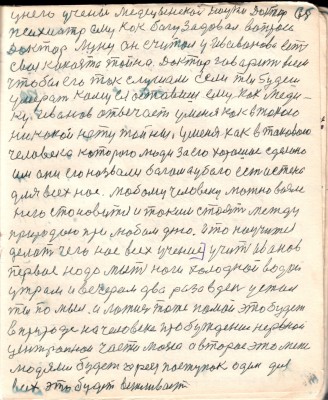 у него учены медецынской науки доктор 65
психиатр ему как богу задовал вопрос
доктор Луну он считал у Иванова есть
своя какаята тайна. Доктор говарит всем
чтобы его так слушали Если ты будеш
умират кому ты оставиш ему как меди-
ку, Иванов отвечает у меня как в такого
никакой нету тайны, у меня как в таковова
человека которого люди за его хорошае сделано
им они его назвали богам а у бога есть истено
для всех нас. любому человеку можно взяв
него становится и таким стоят между
природаю при любом дню. Что научится
делат чего нас всех учение учит Иванов
первое надо мыт ноги холодной водой
утрам и вечерам два раза в ден устал
ты помыл. и ложися тоже помой это будет
в природе на человеке пробуждение нервной
центральной части мозга а второе это меж
людями будет через поступок один для
всех это будет вежливаст